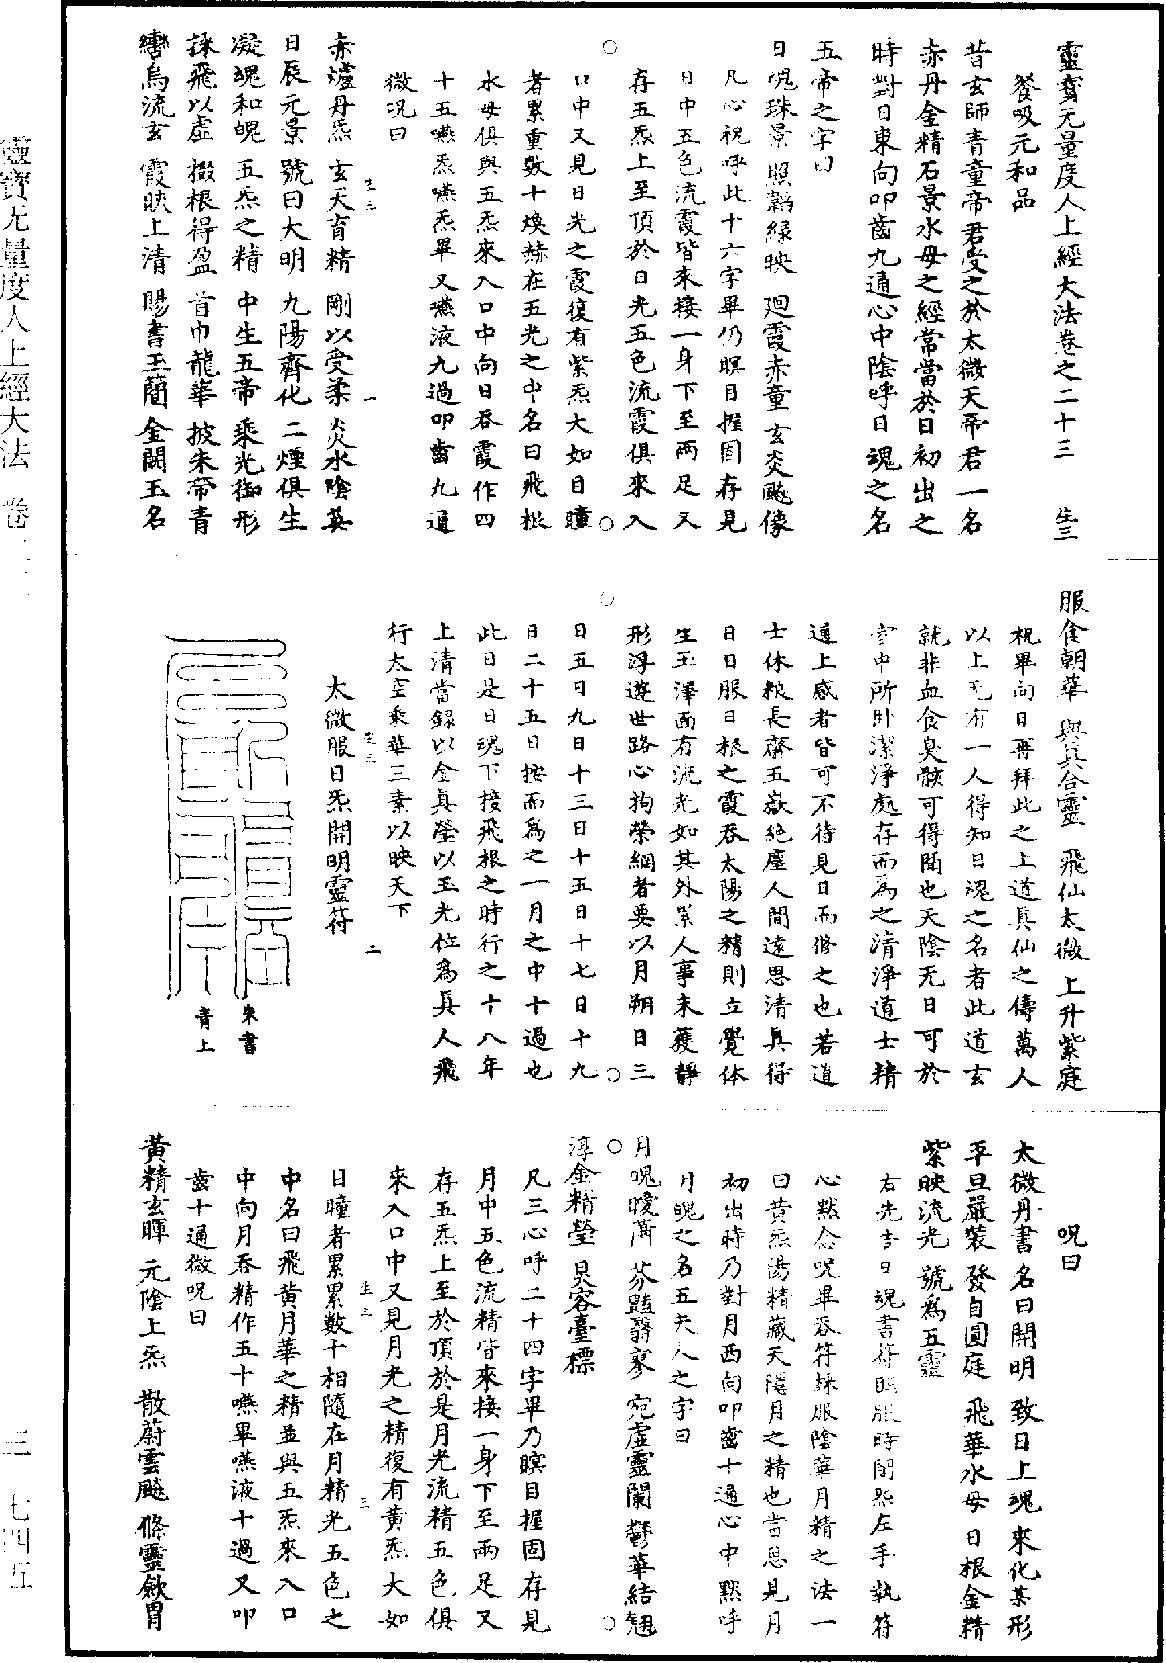 靈寶无量度人上經大法卷之二十三　生三
餐吸元和品
昔玄師青童帝君受之於太微天帝君一名
赤丹金精石景水母之經常當於日初出之
時對日東向叩齒九通心中陰呼日魂之名
五帝之字曰
日魂珠景　照韜綠映　廻霞赤童　玄炎飈像
凡心祝呼此十六字畢仍瞑目握固存見
日中五色流霞皆來接一身下至兩足又
存五炁上至頂於日光五色流霞俱來入
口中又見日光之霞復有紫炁大如目瞳
者累重數十煥赫在五光之中名曰飛根
水母俱與五炁來入口中向日吞霞作四
十五嚥炁嚥炁畢又嚥液九過叩齒九通
微呪曰
赤爐丹炁　玄天育精　剛以受柔　炎水陰英
日辰元景　號曰大明　九陽齊化　二煙俱生
凝魂和魄　五炁之精　中生五帝　乘光御形
採飛以虛　掇根得盈　首巾龍華　披朱帶青
轡烏流玄　霞映上清　賜書玉蕳　金闕玉名
服食朝華　與真合靈　飛仙太微　上升紫庭
祝畢向日再拜此之上道真仙之儔萬人
以上无有一人得知日魂之名者此道玄
就非血食臭骸可得聞也天陰无日可於
室中所卧潔淨處存而爲之清淨道士精
通上感者皆可不待見日而修之也若道
士休粮長齋五嶽絕塵人間遠思清真得
日日服日根之霞吞太陽之精則立覺体
生玉澤面有流光如其外累人事未獲靜
形浮遊世路心拘榮網者要以月朔日三
日五日九日十三日十五日十七日十九
日二十五日按而爲之一月之中十過也
此日是日魂下接飛根之時行之十八年
上清當錄以金真瑩以玉光位爲真人飛
行太空乘華三素以映天下
太微服日炁開明靈符
朱書
青上
呪曰
太微丹書　名曰開明　致日上魂　來化某形
平旦嚴裝　發自圓庭　飛華水母　日根金精
紫映流光　號爲五靈
右先吉日視書符臨服時閉炁左手執符
心黙念呪畢吞符採服陰華月精之法一
曰黃炁陽精藏天隱月之精也當思見月
初出時乃對月西向叩齒十通心中黙呼
月魄之名五夫人之字曰
月魄曖蕭　芬豔翳寥　宛虛靈蘭　鬱華結翹
淳金精瑩　炅容臺標
凡三心呼二十四字畢乃瞑目握固存見
月中五色流精皆來接一身下至兩足又
存五炁上至於頂於是月光流精五色俱
來入口中又見月光之精復有黃炁大如
目瞳者累累數十相隨在月精光五色之
中名曰飛黃月華之精並與五炁來入口
中向月吞精作五十嚥畢嚥液十過又叩
齒十通微呪曰
黃精玄暉　元陰上炁　散蔚雲飈　條靈斂胃
靈寶无量度人上經大法　卷二
三　七四五